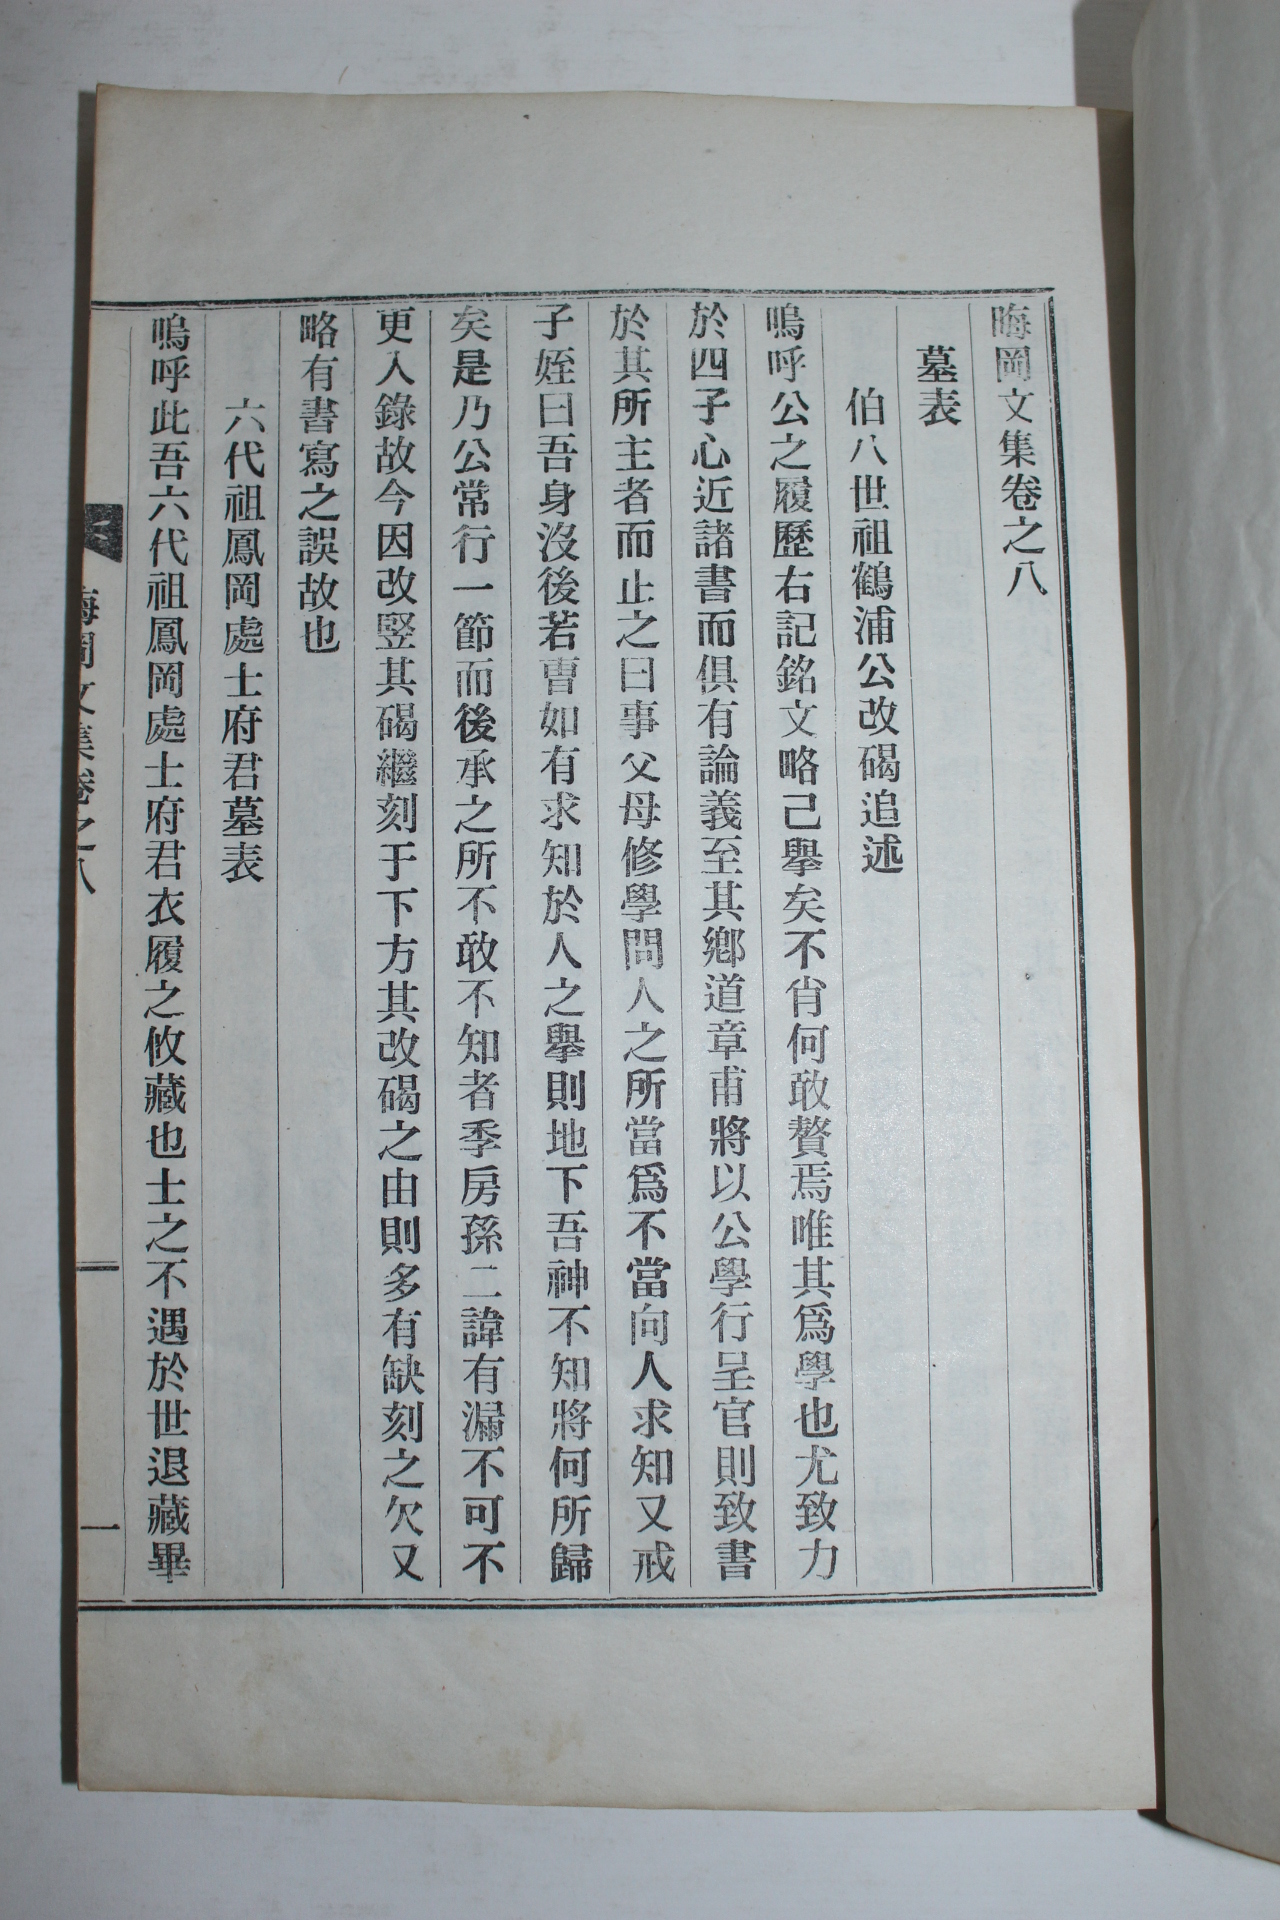 晦岡文集卷之八
墓表
伯八世祖鶴浦公改碣追述
嗚呼公之履歷右記銘文略己擧矣不肖何敢贅焉唯其爲學也尤致力
於四子心近諸書而俱有論義至其鄕道章甫將以公學行呈官則致書
於其所主者而止之曰事父母修學問人之所當爲不當向人求知又戒
子姪曰吾身沒後若曺如有求知於人之擧則地下吾神不知將何所歸
矣是乃公常行一節而後承之所不敢不知者季房孫二諱有漏不可不
更入錄故今因改竪其碣繼刻于下方其改碣之由則多有缺刻之欠又
略有書寫之誤故也
六代祖鳳岡處士府君墓表
嗚呼此吾六代祖鳳岡處士府君衣履之攸藏也士之不遇於世退藏畢
晦岡文集卷之八
一